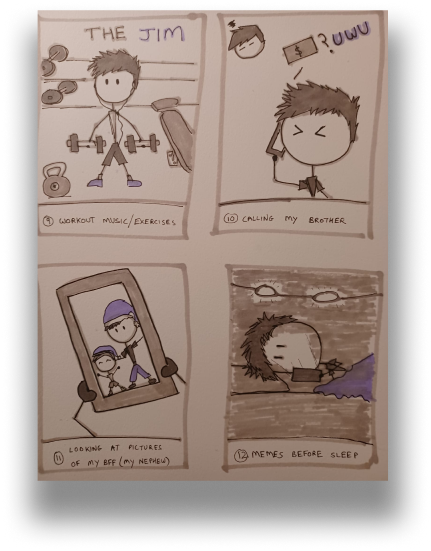 THE JIM
⑨ WORKOUT MUSIC/EXERCISES
$ ? UWU
⑩ CALLING MY BROTHER
⑪ LOOKING AT PICTURES
OF MY BFF (MY NEPHEW)
⑫ MEMES BEFORE SLEEP